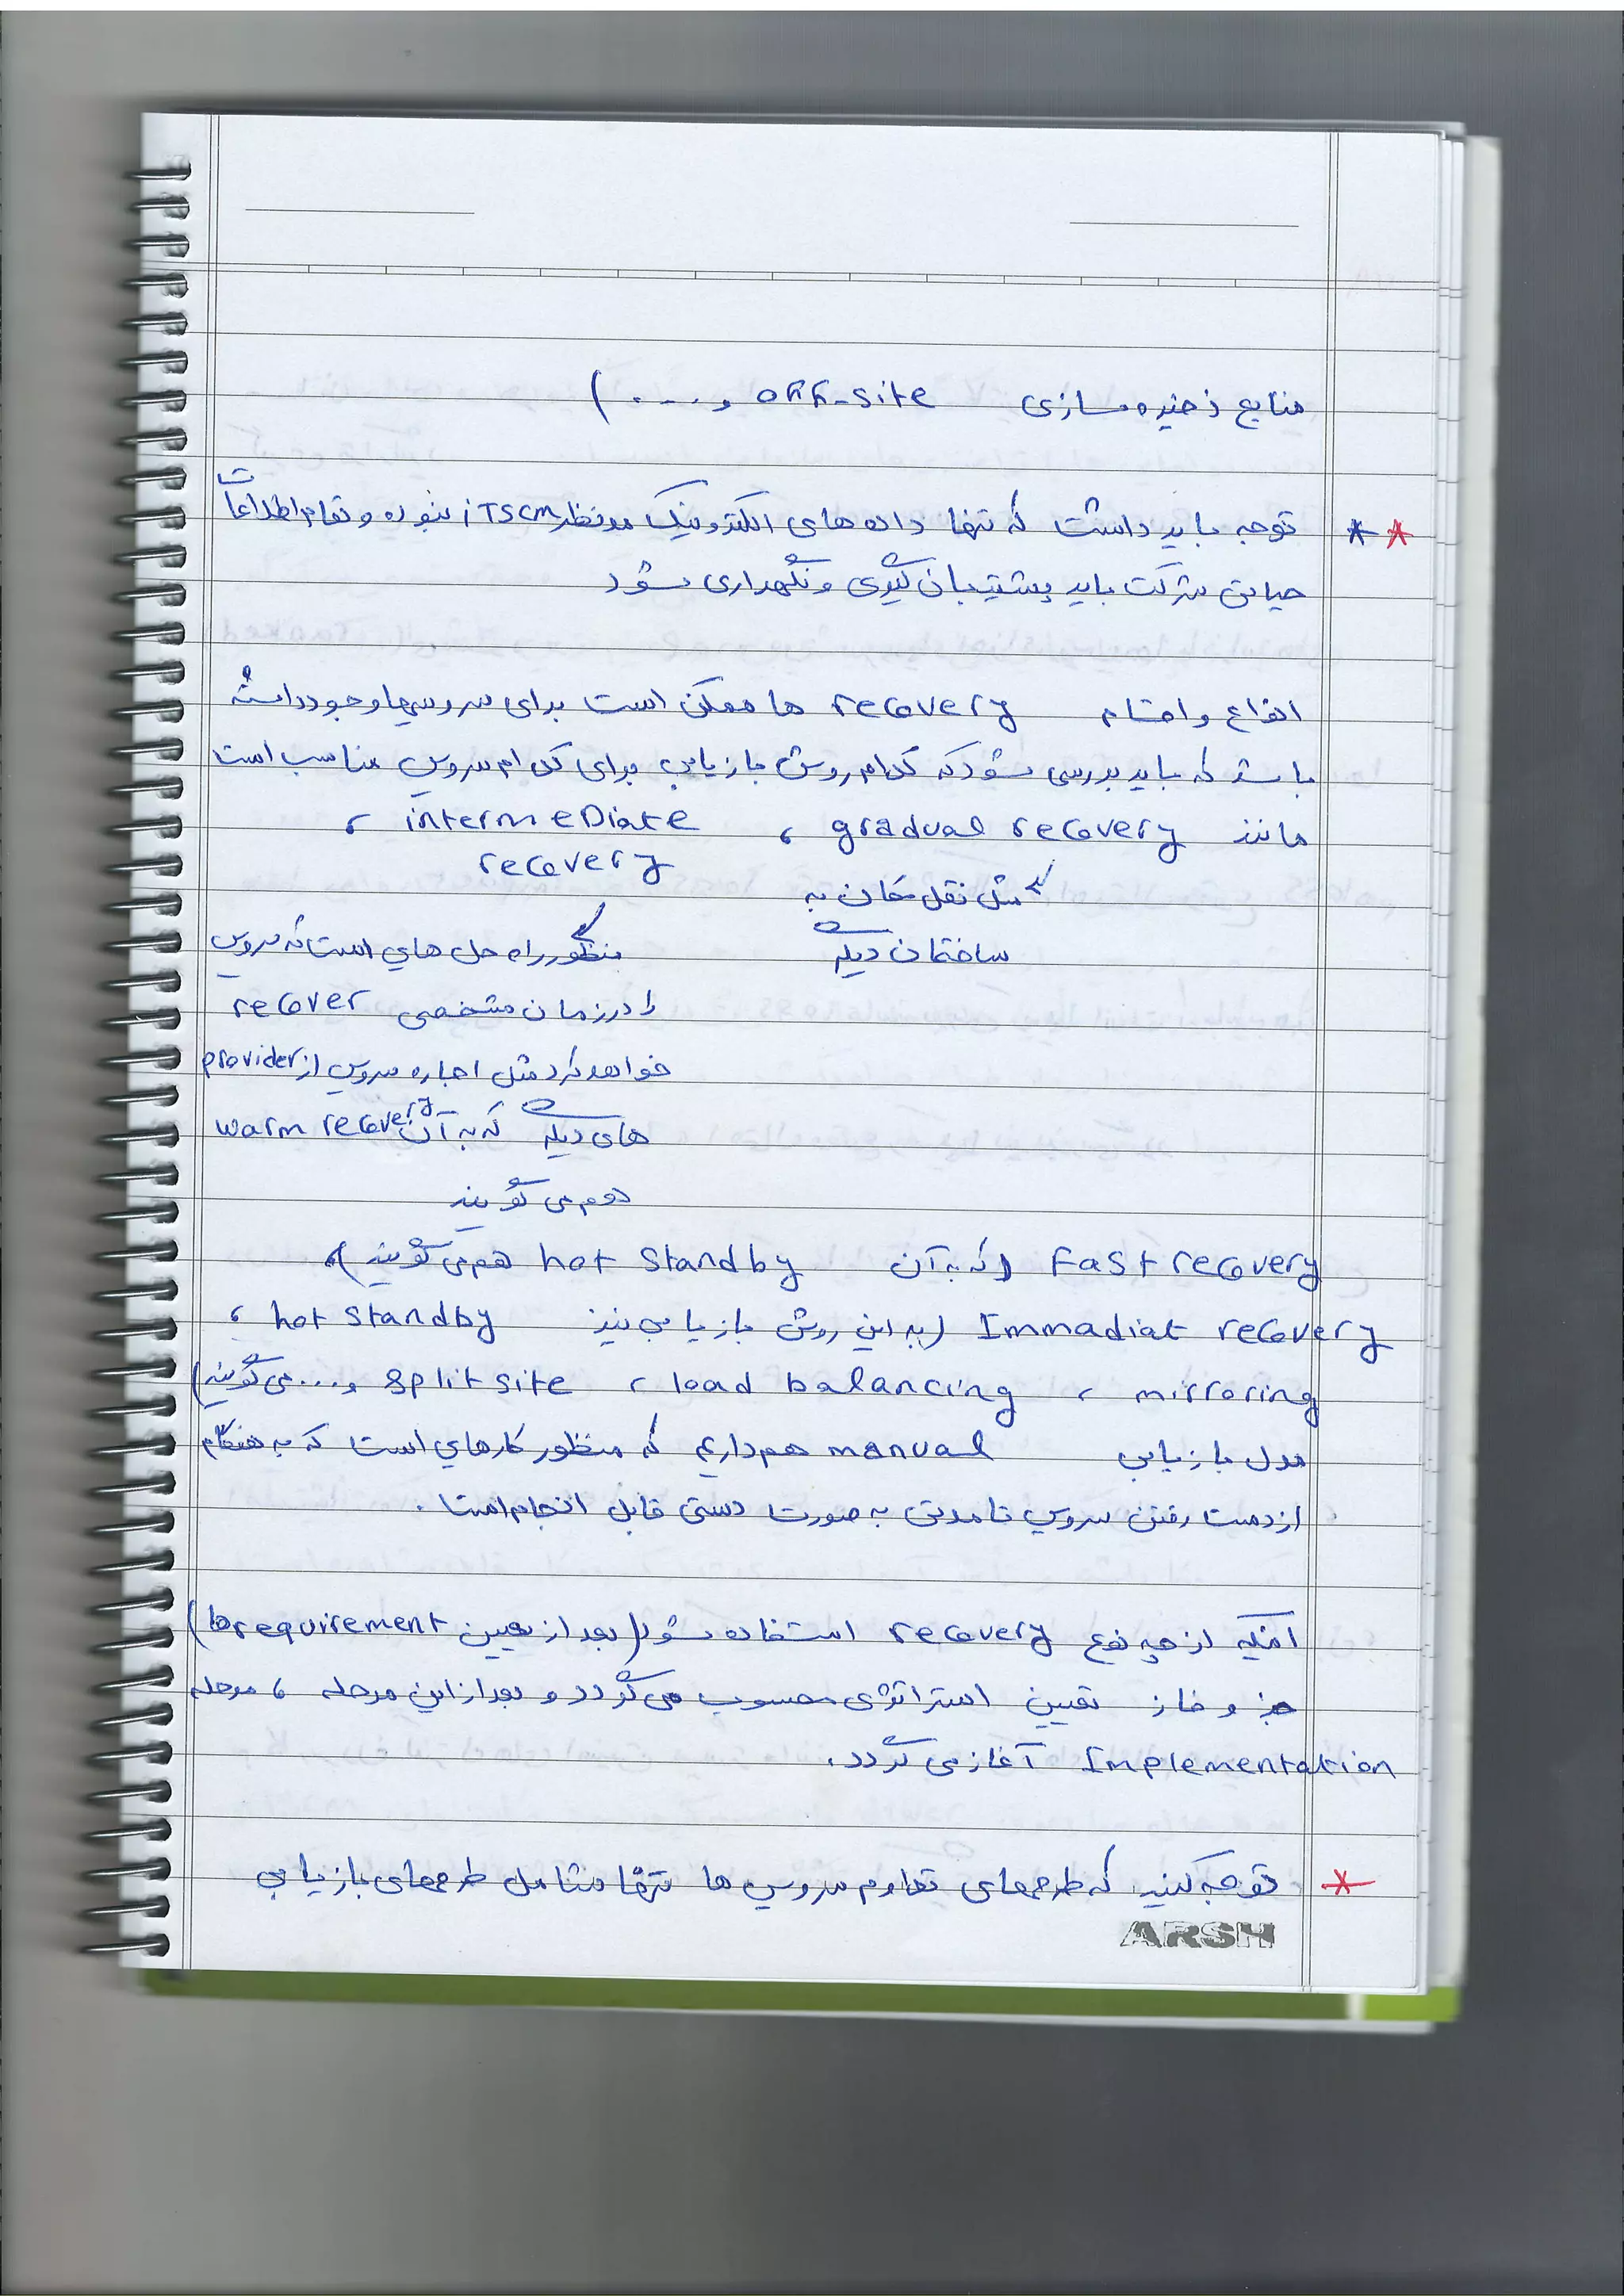 منابع ذخیره سازی off-site و ....)
** توجه باید داشت که تنها داده های الکترونیک مدنظر iTSCM نبوده و تمام اطلاعات
حیاتی شرکت باید پشتیبان گیری و نگهداری شود
انواع و اقسام recovery ها ممکن است برای سرویسها وجود داشته
باشد که باید بررسی شود که کدام روش بازیابی برای کدام سرویس مناسب است
مانند gradual recovery ، intermeDiate recovery ،
مثل نقل مکان به
ساختمان دیگه
منظور راه حل هایی است که سرویس
را در زمان مشخصی recover
خواهد کرد مثل اجاره سرویس از provider
های دیگه که به آن warm recovery
هم می گویند
Fast recovery (که به آن hot standby هم می گویند)
Immadiat recovery (به این روش بازیابی نیز hot standby ،
mirroring ، load balancing ، split site و... می گویند)
مدل بازیابی manual هم داریم که منظور کارهایی است که به هنگام
از دست رفتن سرویس تا مدتی به صورت دستی قابل انجام است.
اینکه از چه نوع recovery استفاده شود (بعد از تعیین requirement ها)
جز و فاز تعیین استراتژی محسوب می گردد و بعد از این مرحله ، مرحله
Implementation آغاز می گردد.
* توجه کنید که طرحهای تداوم سرویس ها تنها شامل طرحهای بازیابی
ARSH